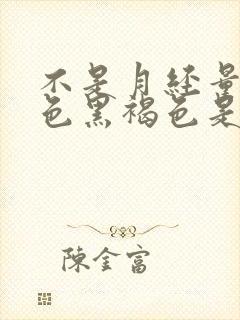 不是月经量
色黑褐色是
陳金富